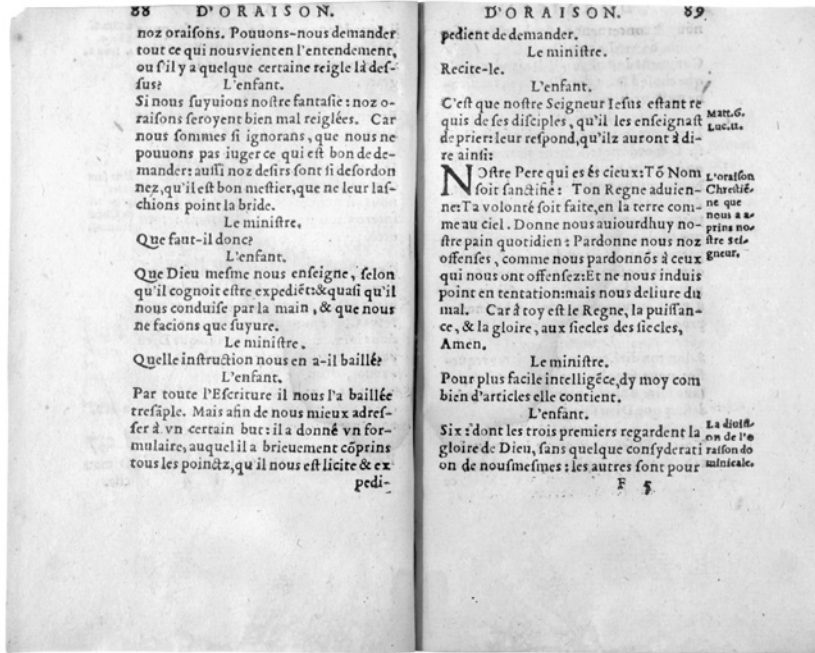 88 D'ORAISON.
noz oraiſons. Pouuons-nous demander
tout ce qui nous vient en l'entendement,
ou ſ'il y a quelque certaine reigle là deſ-
ſus? L'enfant.
Si nous ſuyuions noſtre fantaſie: noz o-
raiſons ſeroyent bien mal reiglées. Car
nous ſommes ſi ignorans, que nous ne
pouuons pas iuger ce qui eſt bon de de-
mander: auſſi noz deſirs ſont ſi deſordon
nez, qu'il eſt bon meſtier, que ne leur laſ-
chions point la bride.
Le miniſtre.
Que faut-il donc?
L'enfant.
Que Dieu meſme nous enſeigne, ſelon
qu'il cognoit eſtre expediēt: & quaſi qu'il
nous conduiſe par la main, & que nous
ne facions que ſuyure.
Le miniſtre.
Quelle inſtruction nous en a-il baillé?
L'enfant.
Par toute l'Eſcriture il nous l'a baillée
treſāple. Mais afin de nous mieux adreſ-
ſer à vn certain but: il a donné vn for-
mulaire, auquel il a brieuement cōprins
tous les poinctz, qu'il nous eſt licite & ex
pedi-
D'ORAISON. 89
pedient de demander.
Le miniſtre.
Recite-le.
L'enfant.
C'eſt que noſtre Seigneur Ieſus eſtant re
quis de ſes diſciples, qu'il les enſeignaſt
de prier: leur reſpond, qu'ilz auront à di-
re ainſi:
Matt.6.
Luc.11.
NOſtre Pere qui es és cieux: Tō Nom
ſoit ſanctifié: Ton Regne aduien-
ne: Ta volonté ſoit faite, en la terre com-
me au ciel. Donne nous auiourdhuy no-
ſtre pain quotidien: Pardonne nous noz
offenſes, comme nous pardonnōs à ceux
qui nous ont offenſez: Et ne nous induis
point en tentation: mais nous deliure du
mal. Car à toy eſt le Regne, la puiſſan-
ce, & la gloire, aux ſiecles des ſiecles,
Amen.
L'oraiſon
Chreſtiē-
ne que
nous a a-
prins no-
ſtre ſei-
gneur.
Le miniſtre.
Pour plus facile intelligēce, dy moy com
bien d'articles elle contient.
L'enfant.
Six: dont les trois premiers regardent la
gloire de Dieu, ſans quelque conſyderati
on de nouſmeſmes: les autres ſont pour
La diuiſi-
on de l'o
raiſon do
minicale.
F 5